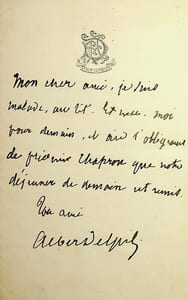 Mon cher ami, je suis
malade, au lit. Excuse-moi
pour demain, et aie l'obligeance
de prévenir Chapron que notre
déjeuner de demain est remis.
Ton ami
Albert Delpit